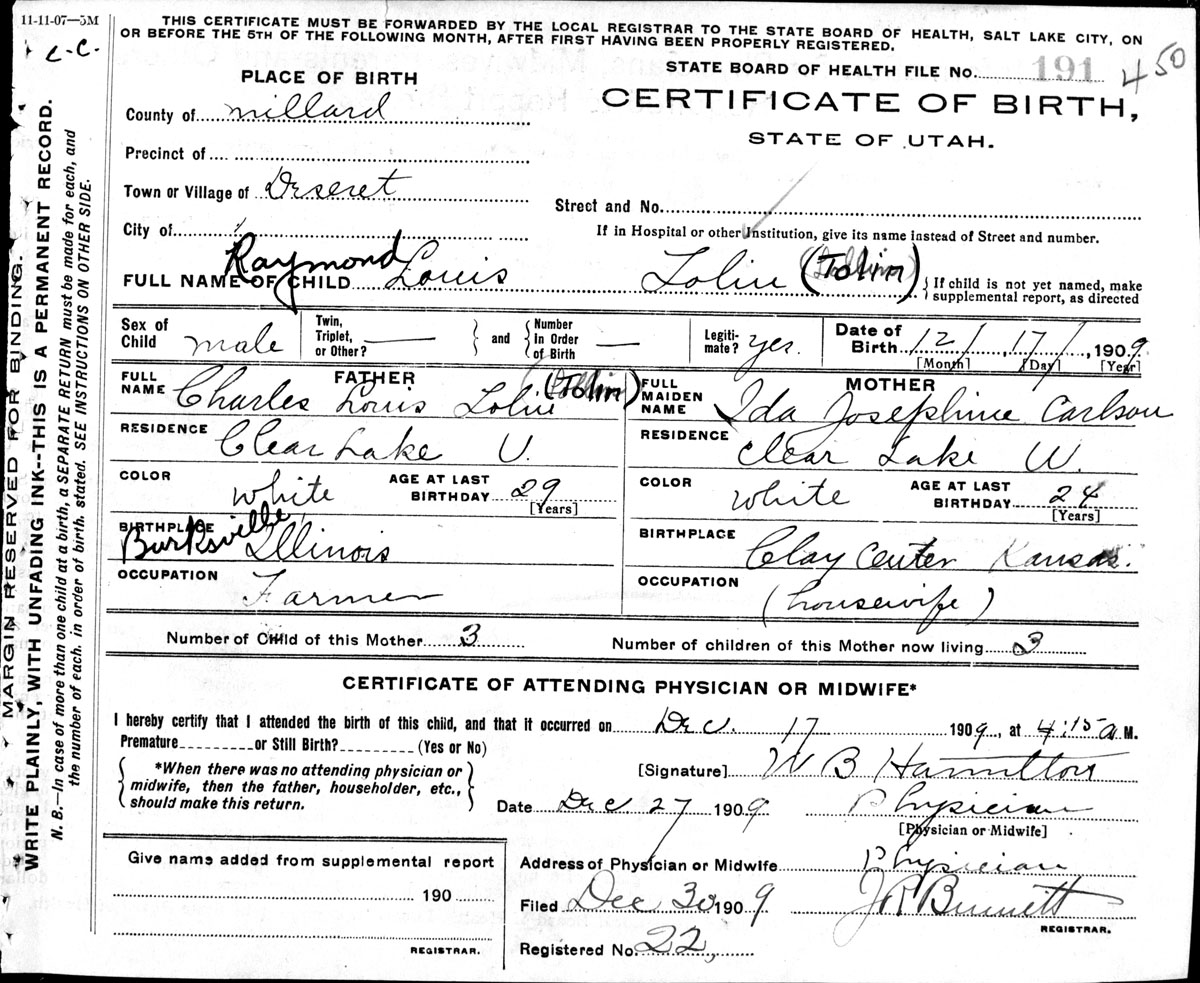 11-11-07—5M
C-C.
THIS CERTIFICATE MUST BE FORWARDED BY THE LOCAL REGISTRAR TO THE STATE BOARD OF HEALTH, SALT LAKE CITY, ON
OR BEFORE THE 5TH OF THE FOLLOWING MONTH, AFTER FIRST HAVING BEEN PROPERLY REGISTERED.
STATE BOARD OF HEALTH FILE No. 191 450
CERTIFICATE OF BIRTH,
STATE OF UTAH.
PLACE OF BIRTH
County of Millard
Precinct of
Town or Village of Deseret
Street and No.
City of
If in Hospital or other Institution, give its name instead of Street and number.
FULL NAME OF CHILD Raymond Louis Tolin (Tolin)
{ If child is not yet named, make
supplemental report, as directed
Sex of Child male
Twin, Triplet, or Other? —
and
Number In Order of Birth —
Legiti-mate? yes.
Date of Birth 12 / 17 / , 1909
[Month] [Day] [Year]
FATHER
FULL NAME Charles Louis Tolin (Tolin)
RESIDENCE Clear Lake U.
COLOR White
AGE AT LAST BIRTHDAY 29
[Years]
BIRTHPLACE Burksville Illinois
OCCUPATION Farmer
MOTHER
FULL MAIDEN NAME Ida Josephine Carlson
RESIDENCE Clear Lake U.
COLOR White
AGE AT LAST BIRTHDAY 24
[Years]
BIRTHPLACE Clay Center Kansas.
OCCUPATION (housewife)
Number of Child of this Mother 3
Number of children of this Mother now living 3
CERTIFICATE OF ATTENDING PHYSICIAN OR MIDWIFE*
I hereby certify that I attended the birth of this child, and that it occurred on Dec. 17 1909, at 4:15 a. M.
Premature or Still Birth? (Yes or No)
*When there was no attending physician or
midwife, then the father, householder, etc.,
should make this return.
[Signature] W B Hamilton
Date Dec 27 1909
Physician
[Physician or Midwife]
Give name added from supplemental report
190
REGISTRAR.
Address of Physician or Midwife Physician
Filed Dec 30 1909
J R Bennett
REGISTRAR.
Registered No. 22,
MARGIN RESERVED FOR BINDING.
WRITE PLAINLY, WITH UNFADING INK--THIS IS A PERMANENT RECORD.
N. B.—In case of more than one child at a birth, a SEPARATE RETURN must be made for each, and
the number of each, in order of birth, stated. SEE INSTRUCTIONS ON OTHER SIDE.